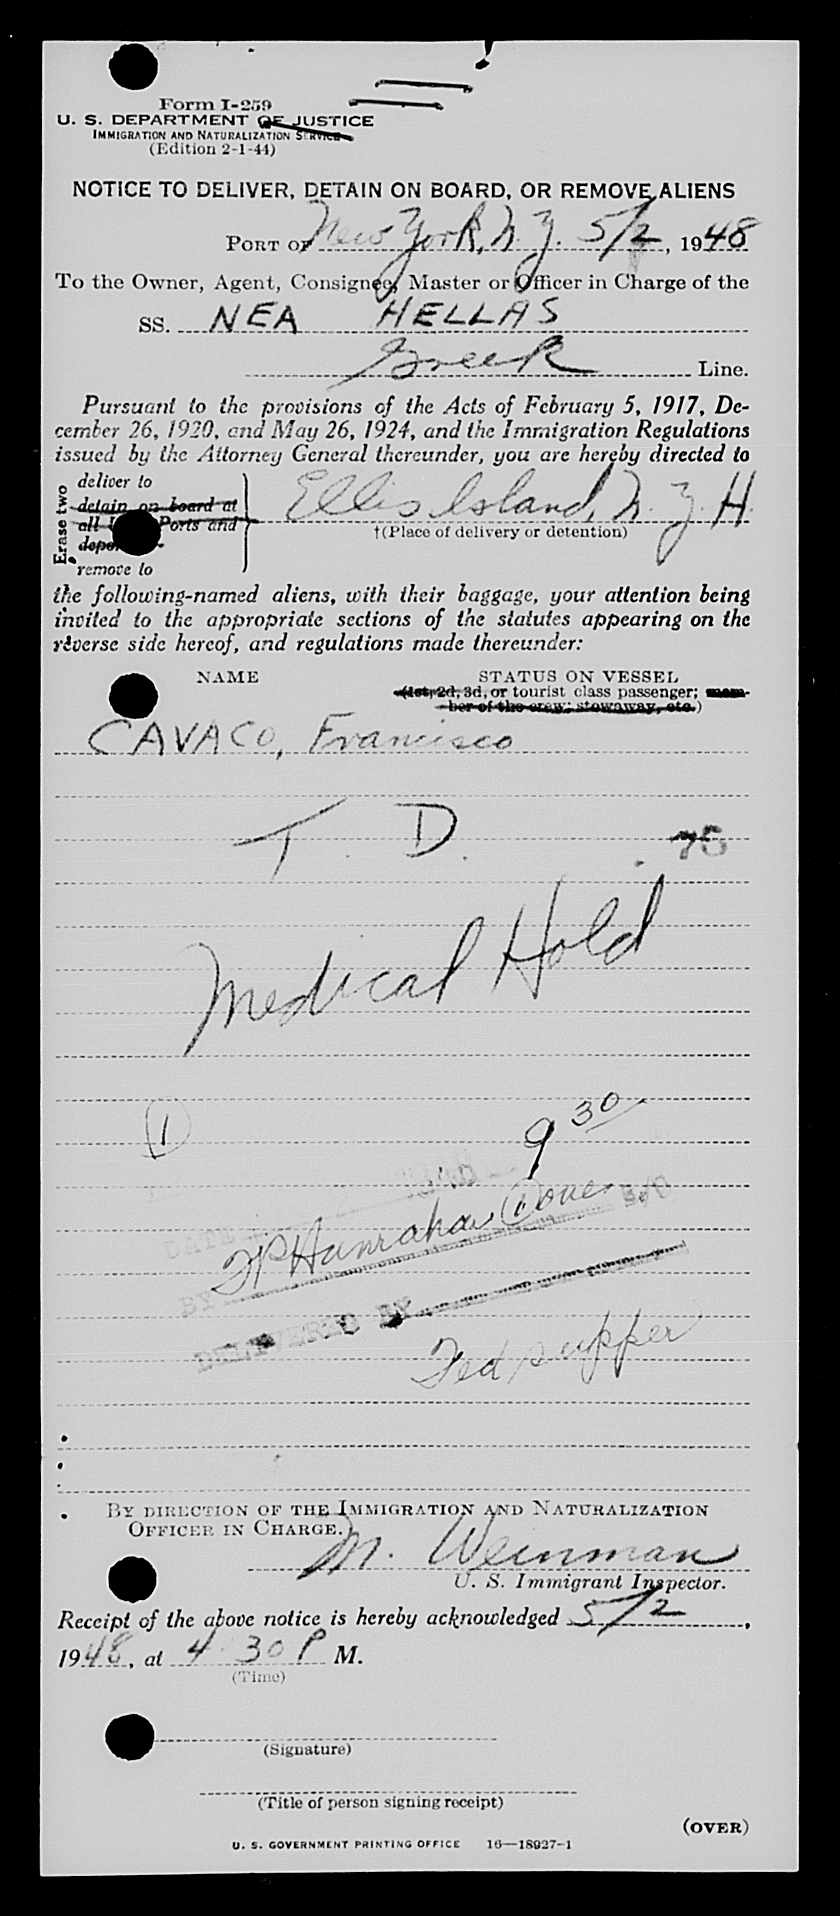 Form I-259
U. S. DEPARTMENT OF JUSTICE
IMMIGRATION AND NATURALIZATION SERVICE
(Edition 2-1-44)
NOTICE TO DELIVER, DETAIN ON BOARD, OR REMOVE ALIENS
PORT OF New York, N. Y. 5/2, 1948
To the Owner, Agent, Consignee, Master or Officer in Charge of the
SS. NEA HELLAS
Greek Line.
Pursuant to the provisions of the Acts of February 5, 1917, De-
cember 26, 1920, and May 26, 1924, and the Immigration Regulations
issued by the Attorney General thereunder, you are hereby directed to
Erase two
deliver to
detain on board at
all Ports and
remove to
Ellis Island, N. Y. H.
†(Place of delivery or detention)
the following-named aliens, with their baggage, your attention being
invited to the appropriate sections of the statutes appearing on the
reverse side hereof, and regulations made thereunder:
NAME STATUS ON VESSEL
(1st, 2d, 3d, or tourist class passenger; mem-
ber of the crew; stowaway, etc.)
CAVACO, Francisco
T. D. 75
Medical Hold
1
9 30
DATE
BY
DELIVERED BY
Fed supper
BY DIRECTION OF THE IMMIGRATION AND NATURALIZATION
OFFICER IN CHARGE.
M. Weinman
U. S. Immigrant Inspector.
Receipt of the above notice is hereby acknowledged 5/2,
1948, at 4 30 P M.
(Time)
(Signature)
(Title of person signing receipt)
(OVER)
U. S. GOVERNMENT PRINTING OFFICE 16—18927-1